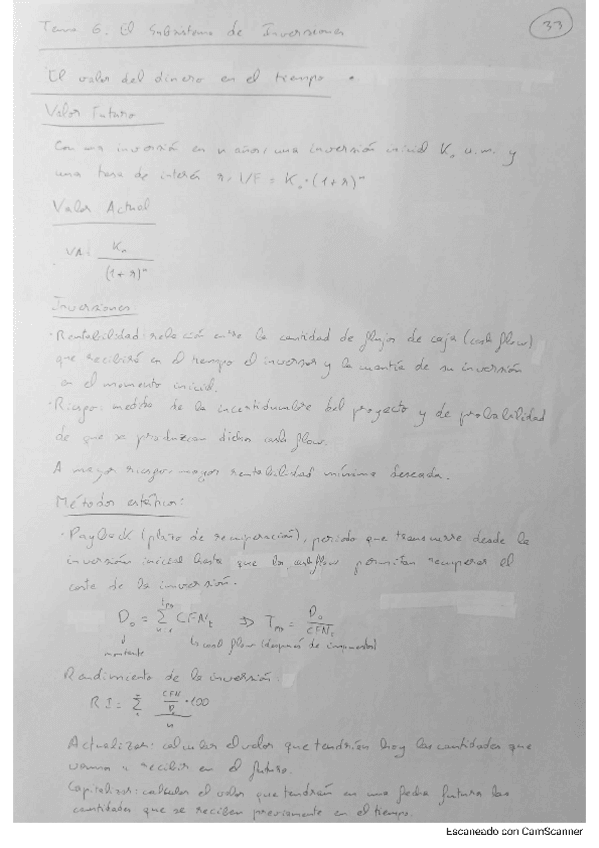 Tema 6: El Subsistema de Inversiones
33
El valor del dinero en el tiempo
Valor Futuro
Con una inversión en n años, una inversión inicial K₀ u.m. y
una tasa de interés r, VF = K₀·(1+r)ⁿ
Valor Actual
VA: Kₙ / (1+r)ⁿ
Inversiones
·Rentabilidad: relación entre la cantidad de flujos de caja (cash flow)
que recibirá en el tiempo el inversor y la cuantía de su inversión
en el momento inicial.
·Riesgo: medida de la incertidumbre del proyecto y de probabilidad
de que se produzcan dichos cash flow.
A mayor riesgo, mayor rentabilidad mínima deseada.
Métodos estáticos:
·Payback (plazo de recuperación), periodo que transcurre desde la
inversión inicial hasta que los cashflow permitan recuperar el
coste de la inversión.
D₀ = Σ CFNₜ ⇒ = D₀ / CFNₜ
montante
cash flow (después de impuestos)
Rendimiento de la inversión
RI = Σ ·100 / n
Actualizar: calcular el valor que tendrían hoy las cantidades que
vamos a recibir en el futuro.
Capitalizar: calcular el valor que tendrán en una fecha futura las
cantidades que se reciben previamente en el tiempo.
Escaneado con CamScanner